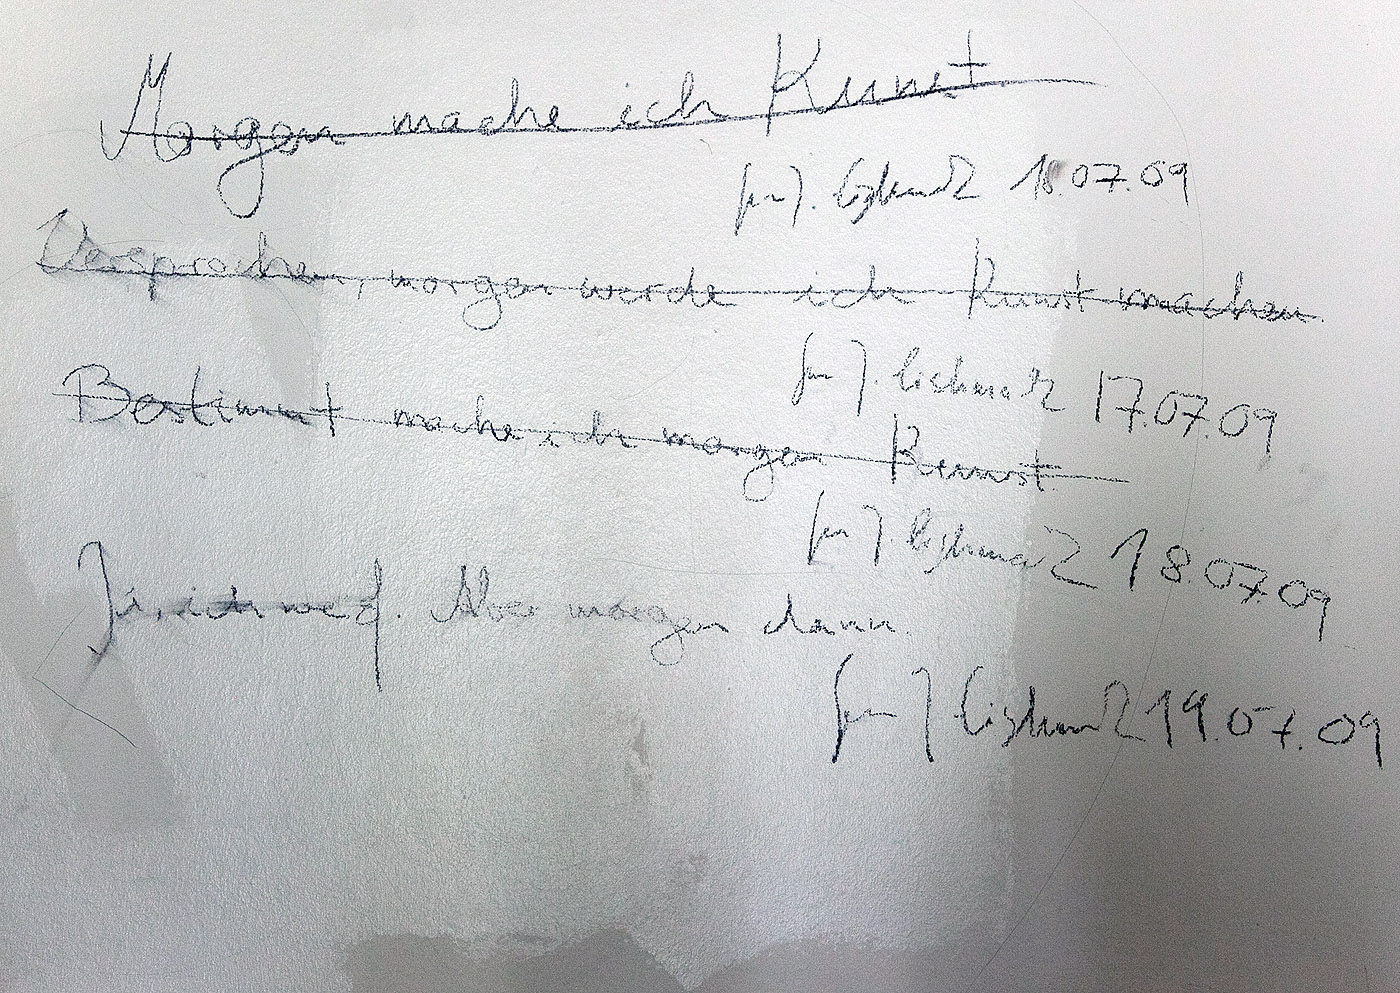 Morgen mache ich Kunst
18.07.09
Versprochen, morgen werde ich Kunst machen.
17.07.09
Bestimmt mache ich morgen Kunst
18.07.09
Ja, ich weiß. Aber morgen dann.
19.07.09